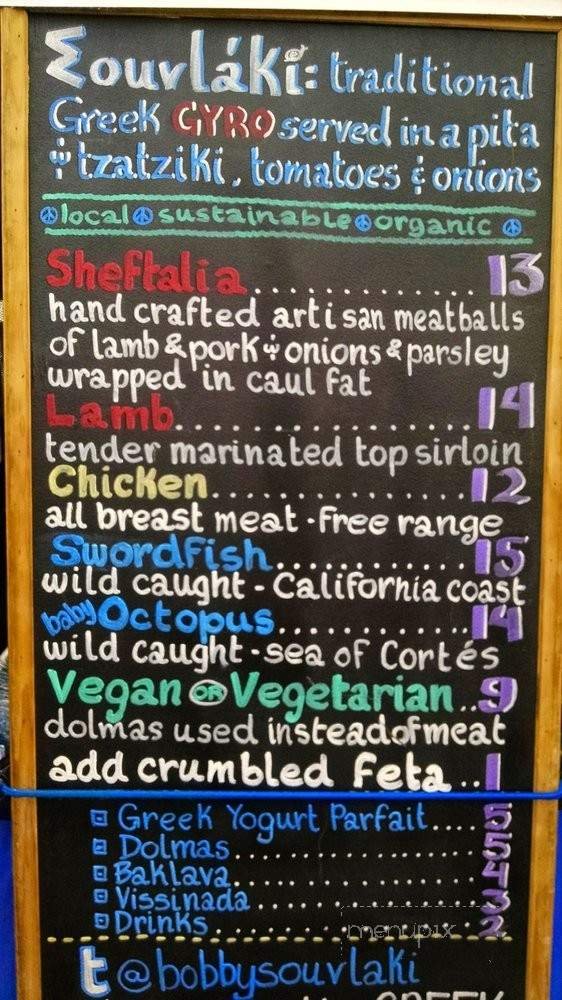 Σouvláki: traditional
Greek GYRO served in a pita
& tzatziki, tomatoes & onions
local sustainable organic
Sheftalia.............. 13
hand crafted artisan meatballs
of lamb & pork & onions & parsley
wrapped in caul fat
Lamb.................. 14
tender marinated top sirloin
Chicken................ 12
all breast meat - free range
Swordfish............ 15
wild caught - California coast
baby Octopus............ 14
wild caught - sea of Cortés
Vegan OR Vegetarian..9
dolmas used instead of meat
add crumbled feta..1
Greek Yogurt Parfait....5
Dolmas.................5
Baklava................4
Vissinada..............3
Drinks.................2
menupix
t @bobbysouvlaki